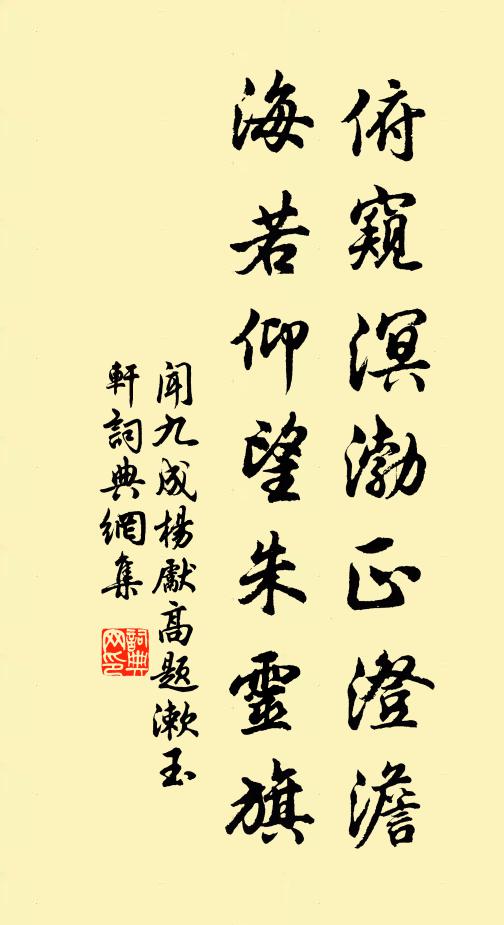 俯窺溟渤正澄澹
海若仰望朱靈旗
聞九成楊獻高題漱玉
軒詞典網集
詞典網印